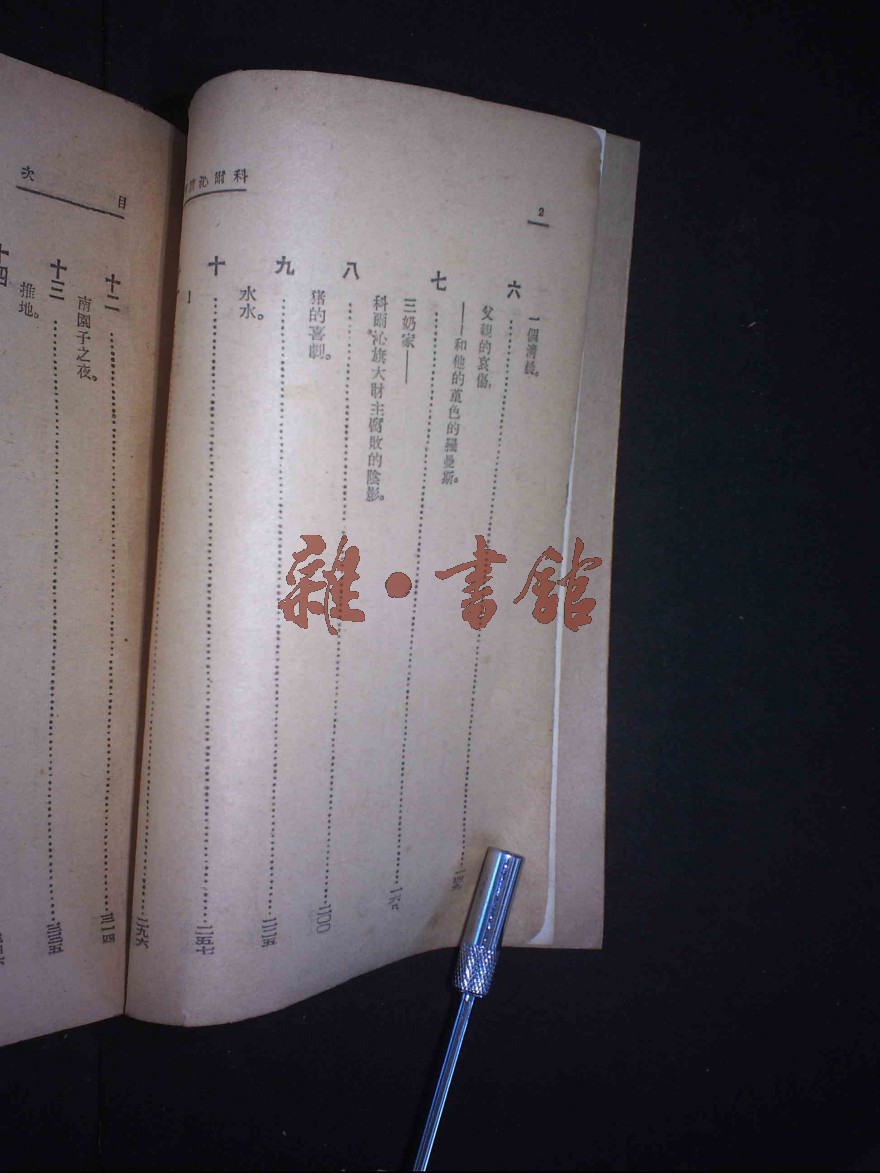 2
科爾沁
六
一個清晨。
父親的哀傷，
——和他的堇色的羅曼斯。
七
三奶家——
科爾沁旗大財主腐敗的陰影。
八
二〇〇
猪的喜劇。
九
二二五
水水。
十
二五七
二九六
目 次
十二
三一四
南園子之夜。
十三
三三五
推地。
十四
雜·書館